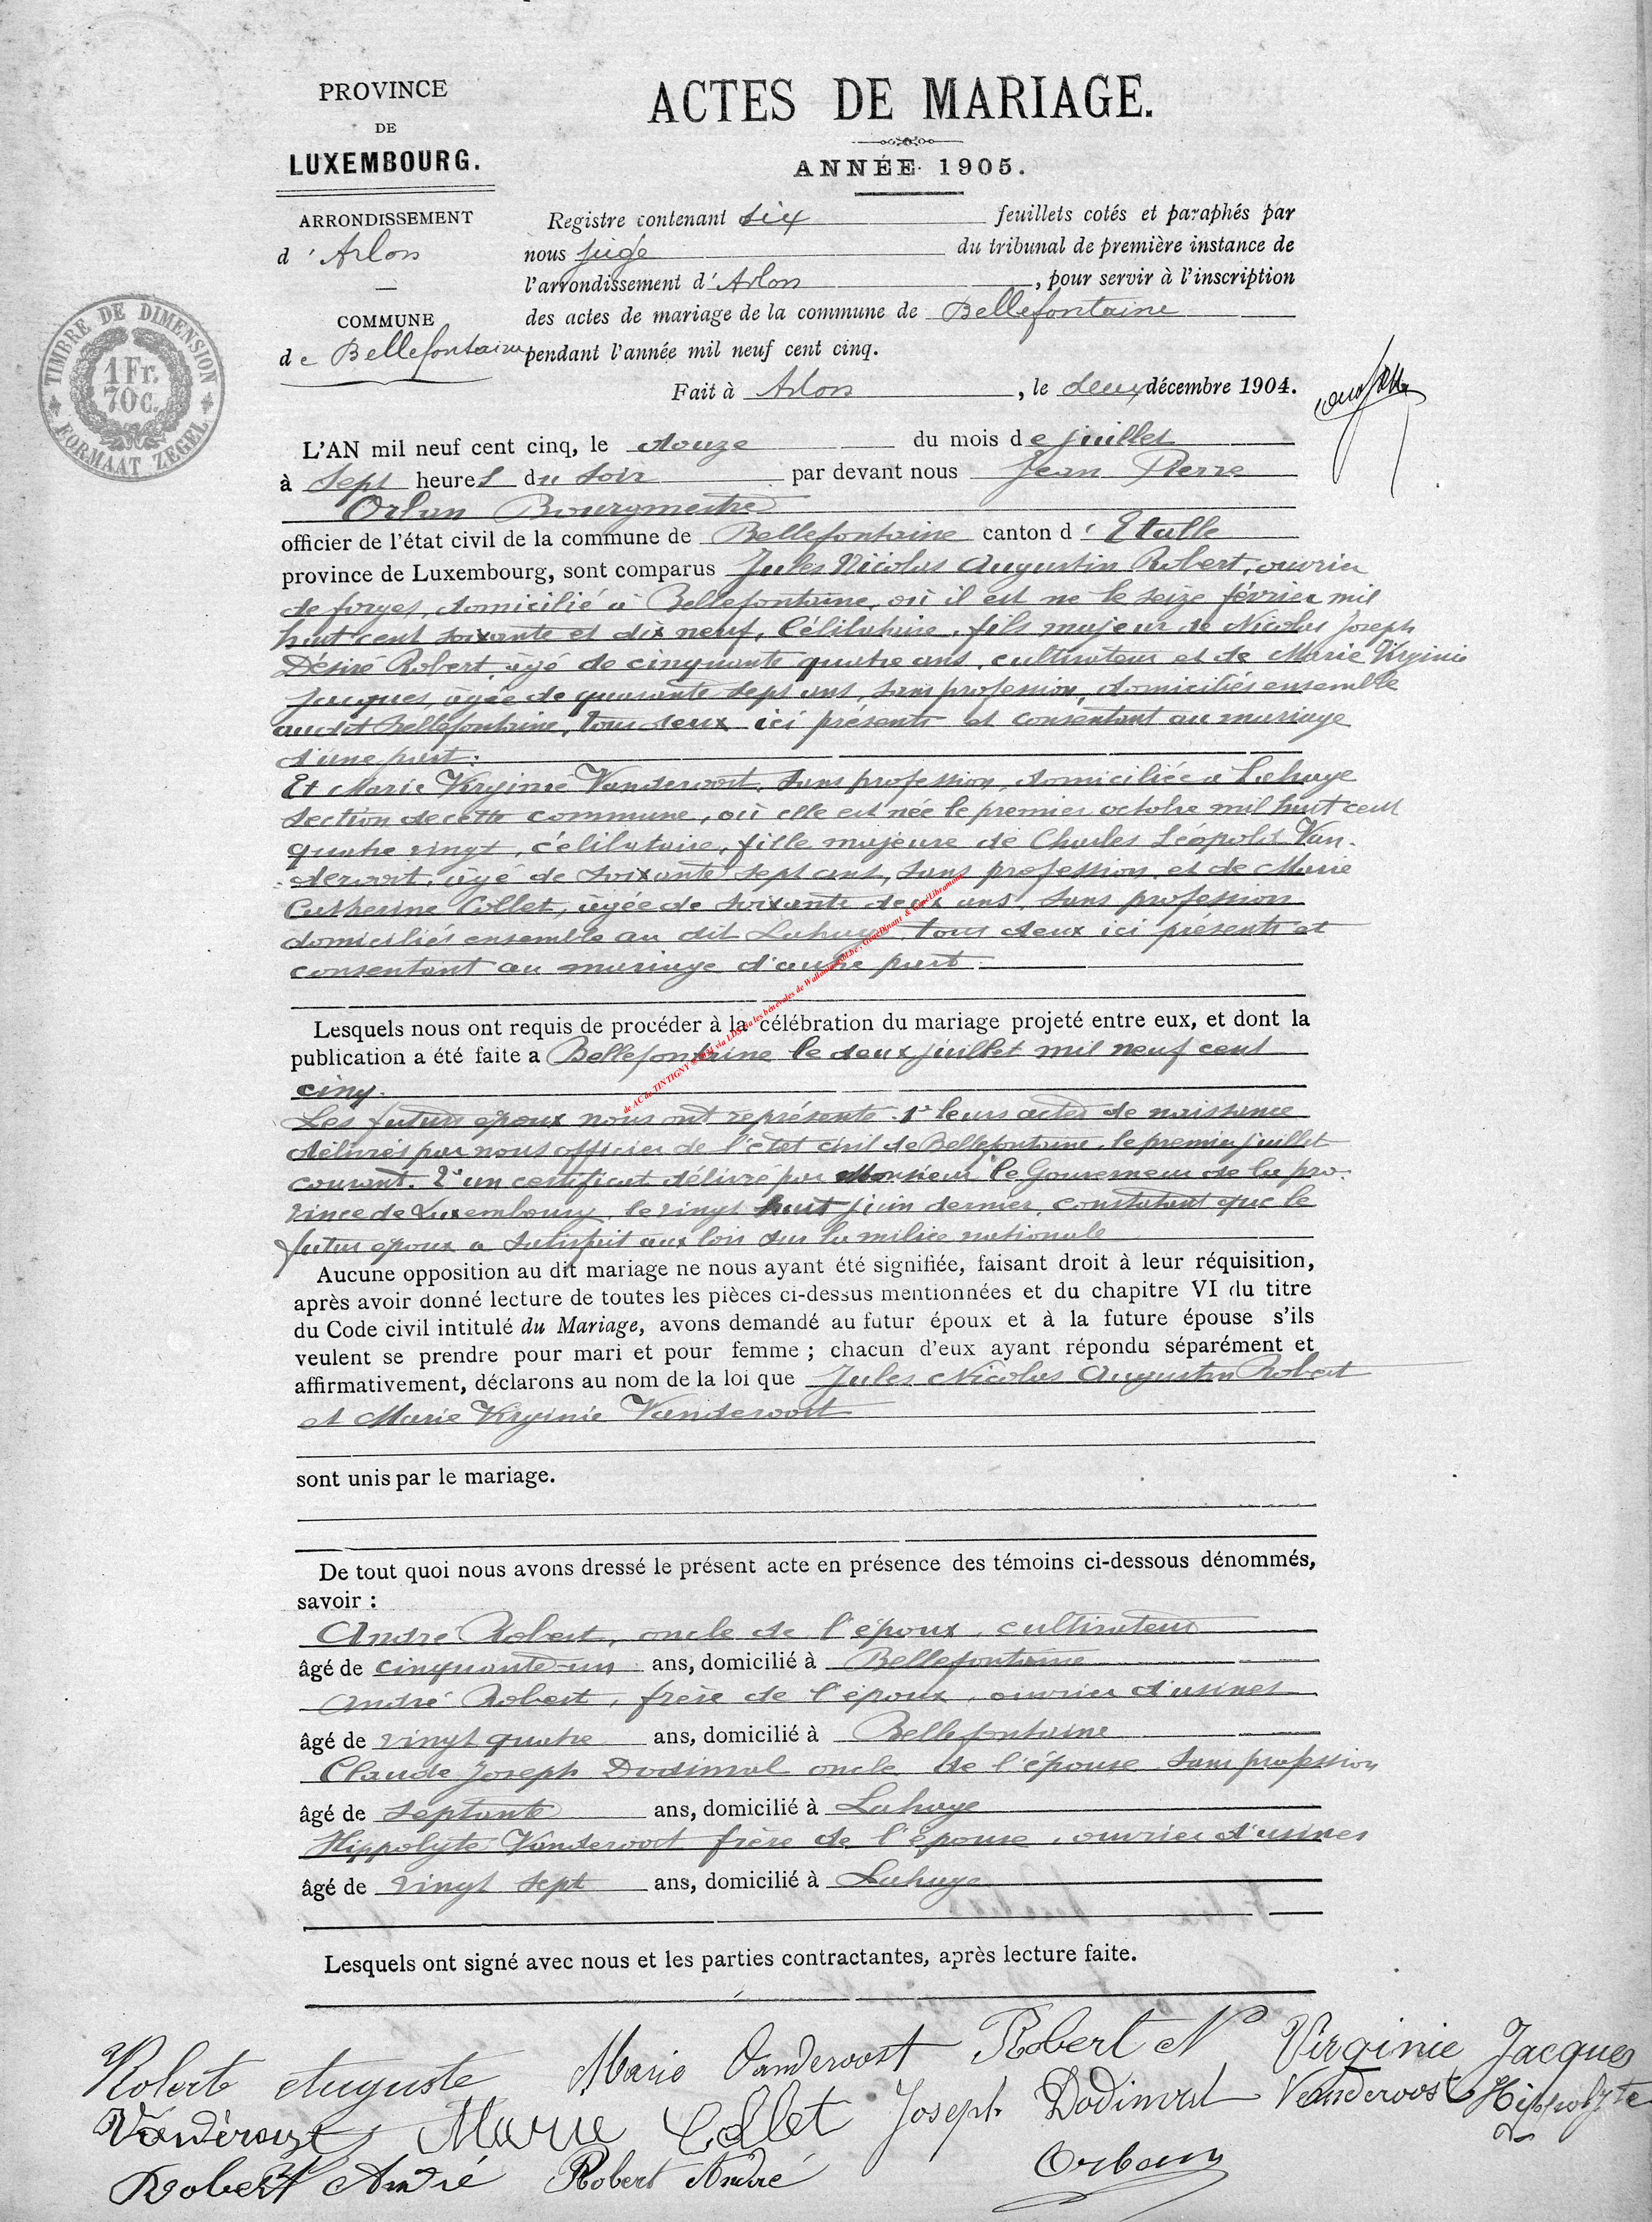 PROVINCE
DE
LUXEMBOURG.
ARRONDISSEMENT
d'Arlon
COMMUNE
de Bellefontaine
TIMBRE DE DIMENSION
1 Fr.
70 c.
FORMAAT ZEGEL
ACTES DE MARIAGE.
ANNÉE 1905.
Registre contenant six feuillets cotés et paraphés par
nous juge du tribunal de première instance de
l'arrondissement d'Arlon, pour servir à l'inscription
des actes de mariage de la commune de Bellefontaine
pendant l'année mil neuf cent cinq.
Fait à Arlon, le deux décembre 1904.
L'AN mil neuf cent cinq, le douze du mois de juillet
à sept heures du soir par devant nous Jean Pierre
Orban Bourgmestre
officier de l'état civil de la commune de Bellefontaine canton d'Etalle
province de Luxembourg, sont comparus Jules Nicolas Augustin Robert, ouvrier
de forges, domicilié à Bellefontaine, où il est né le seize février mil
huit cent soixante et dix neuf, Célibataire, fils majeur de Nicolas Joseph
Désiré Robert, âgé de cinquante quatre ans, cultivateur et de Marie Virginie
Jacques, âgée de quarante sept ans, sans profession, domiciliés ensemble
audit Bellefontaine, tous deux ici présents et consentant au mariage
d'une part ;
Et Marie Virginie Vandervoort, sans profession, domiciliée à Lahage
section de cette commune, où elle est née le premier octobre mil huit cent
quatre vingt, célibataire, fille majeure de Charles Léopold Van-
dervoort, âgé de soixante sept ans, sans profession et de Marie
Catherine Collet, âgée de soixante deux ans, sans profession
domiciliés ensemble au dit Lahage, tous deux ici présents et
consentant au mariage d'autre part.
Lesquels nous ont requis de procéder à la célébration du mariage projeté entre eux, et dont la
publication a été faite a Bellefontaine le deux juillet mil neuf cent
cinq.
Les futurs époux nous ont représenté 1° leurs actes de naissance
délivrés par nous officier de l'état civil de Bellefontaine, le premier juillet
courant. 2° un certificat délivré par Monsieur le Gouverneur de la pro-
vince de Luxembourg, le vingt huit juin dernier, constatant que le
futur époux a satisfait aux lois sur la milice nationale
Aucune opposition au dit mariage ne nous ayant été signifiée, faisant droit à leur réquisition,
après avoir donné lecture de toutes les pièces ci-dessus mentionnées et du chapitre VI du titre
du Code civil intitulé du Mariage, avons demandé au futur époux et à la future épouse s'ils
veulent se prendre pour mari et pour femme ; chacun d'eux ayant répondu séparément et
affirmativement, déclarons au nom de la loi que Jules Nicolas Augustin Robert
et Marie Virginie Vandervoort
sont unis par le mariage.
De tout quoi nous avons dressé le présent acte en présence des témoins ci-dessous dénommés,
savoir :
André Robert, oncle de l'époux, cultivateur
âgé de cinquante-un ans, domicilié à Bellefontaine
André Robert, frère de l'époux, ouvrier d'usines
âgé de vingt quatre ans, domicilié à Bellefontaine
Claude Joseph Dodimval oncle de l'épouse sans profession
âgé de septante ans, domicilié à Lahage
Hippolyte Vandervoort frère de l'épouse, ouvrier d'usines
âgé de vingt sept ans, domicilié à Lahage
Lesquels ont signé avec nous et les parties contractantes, après lecture faite.
Robert Auguste Marie Vandervoort Robert N Virginie Jacques
Marie Collet Joseph Dodimval Vandervoort Hippolyte
Robert André Robert André Orban